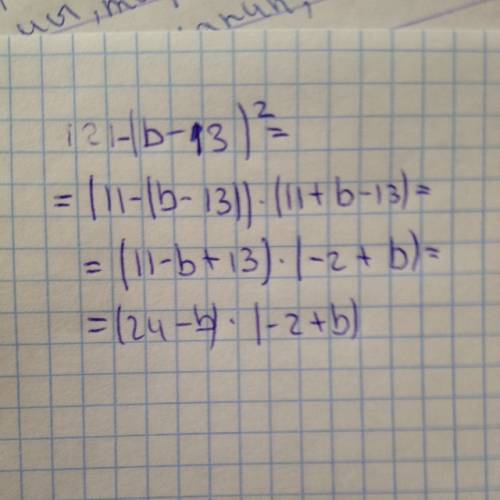 121-(b-13)²=
=(11-(b-13))·(11+b-13)=
=(11-b+13)·(-2+b)=
=(24-b)·(-2+b)